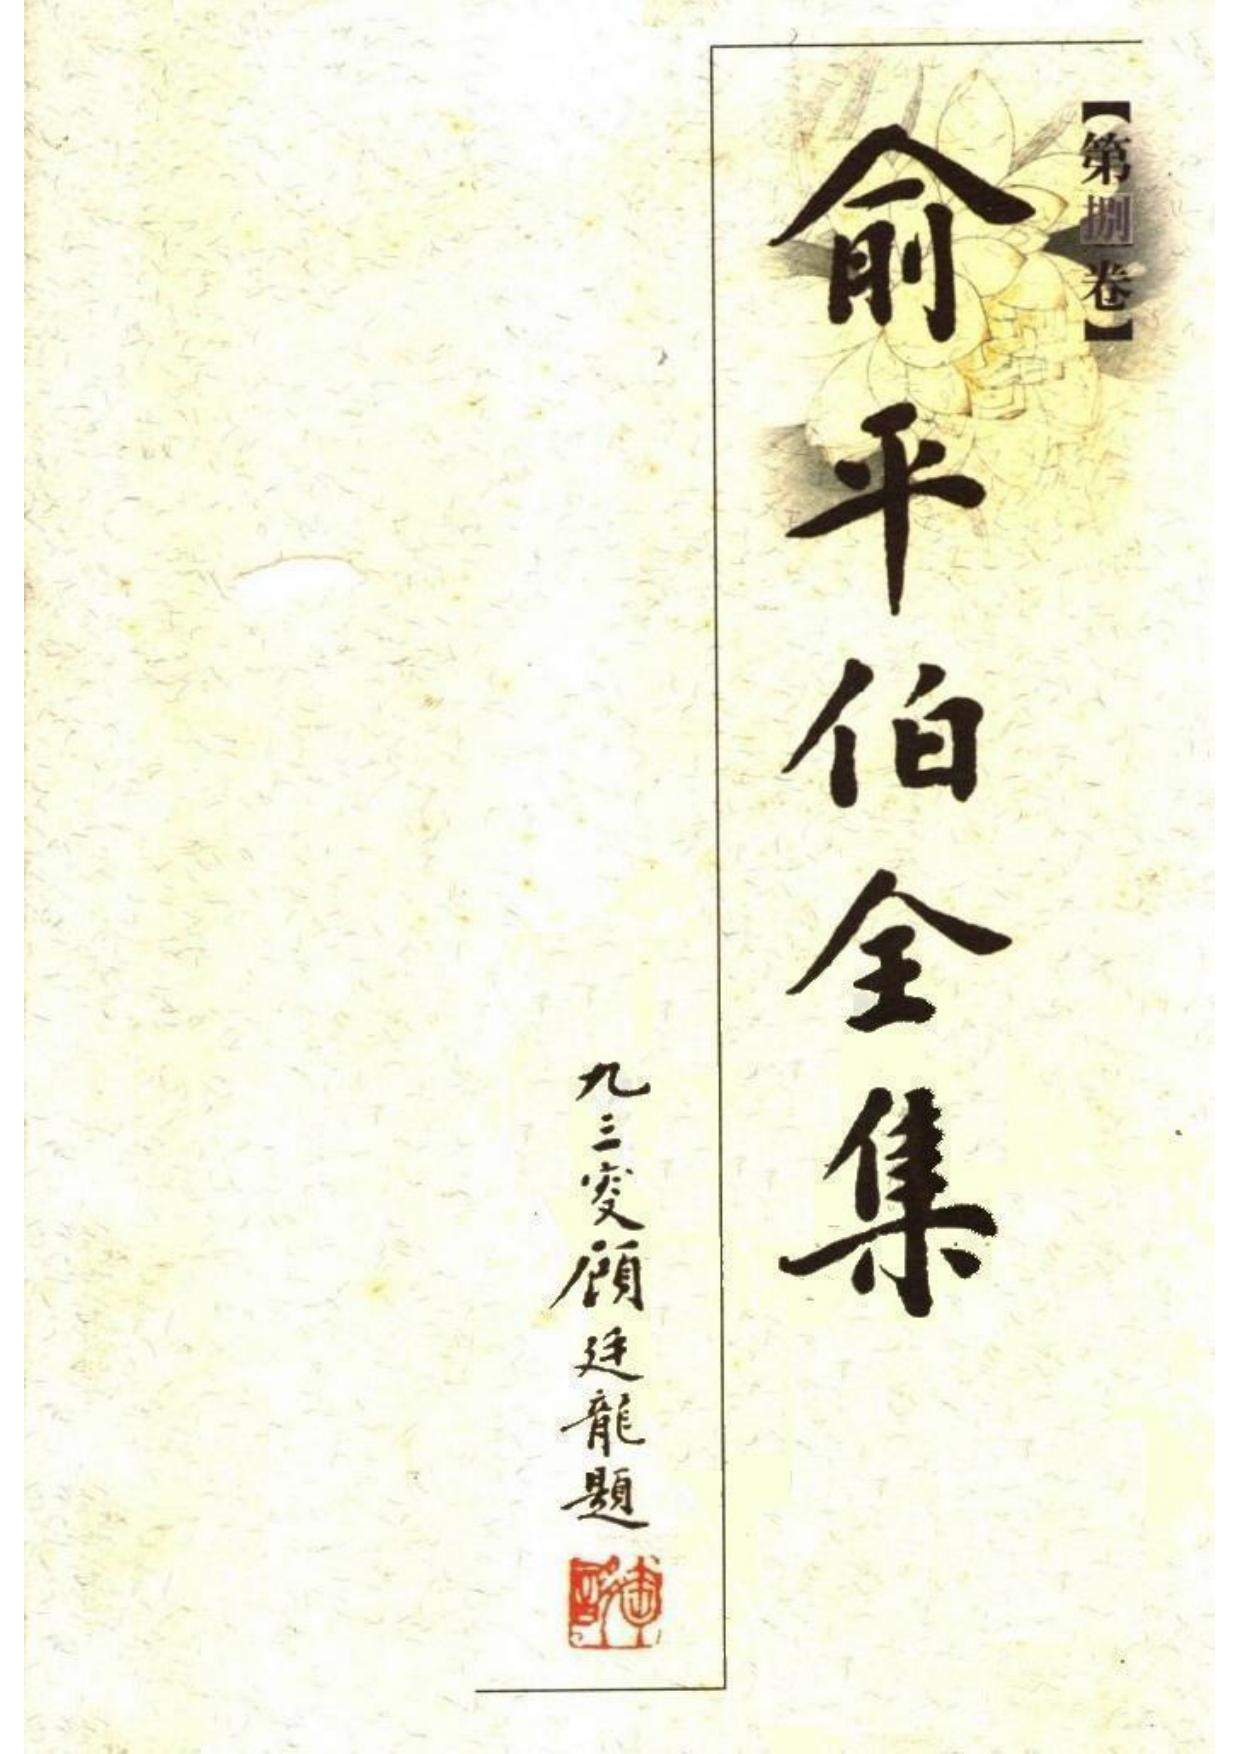 【第捌卷】
俞平伯全集
九三叟顾廷龍題